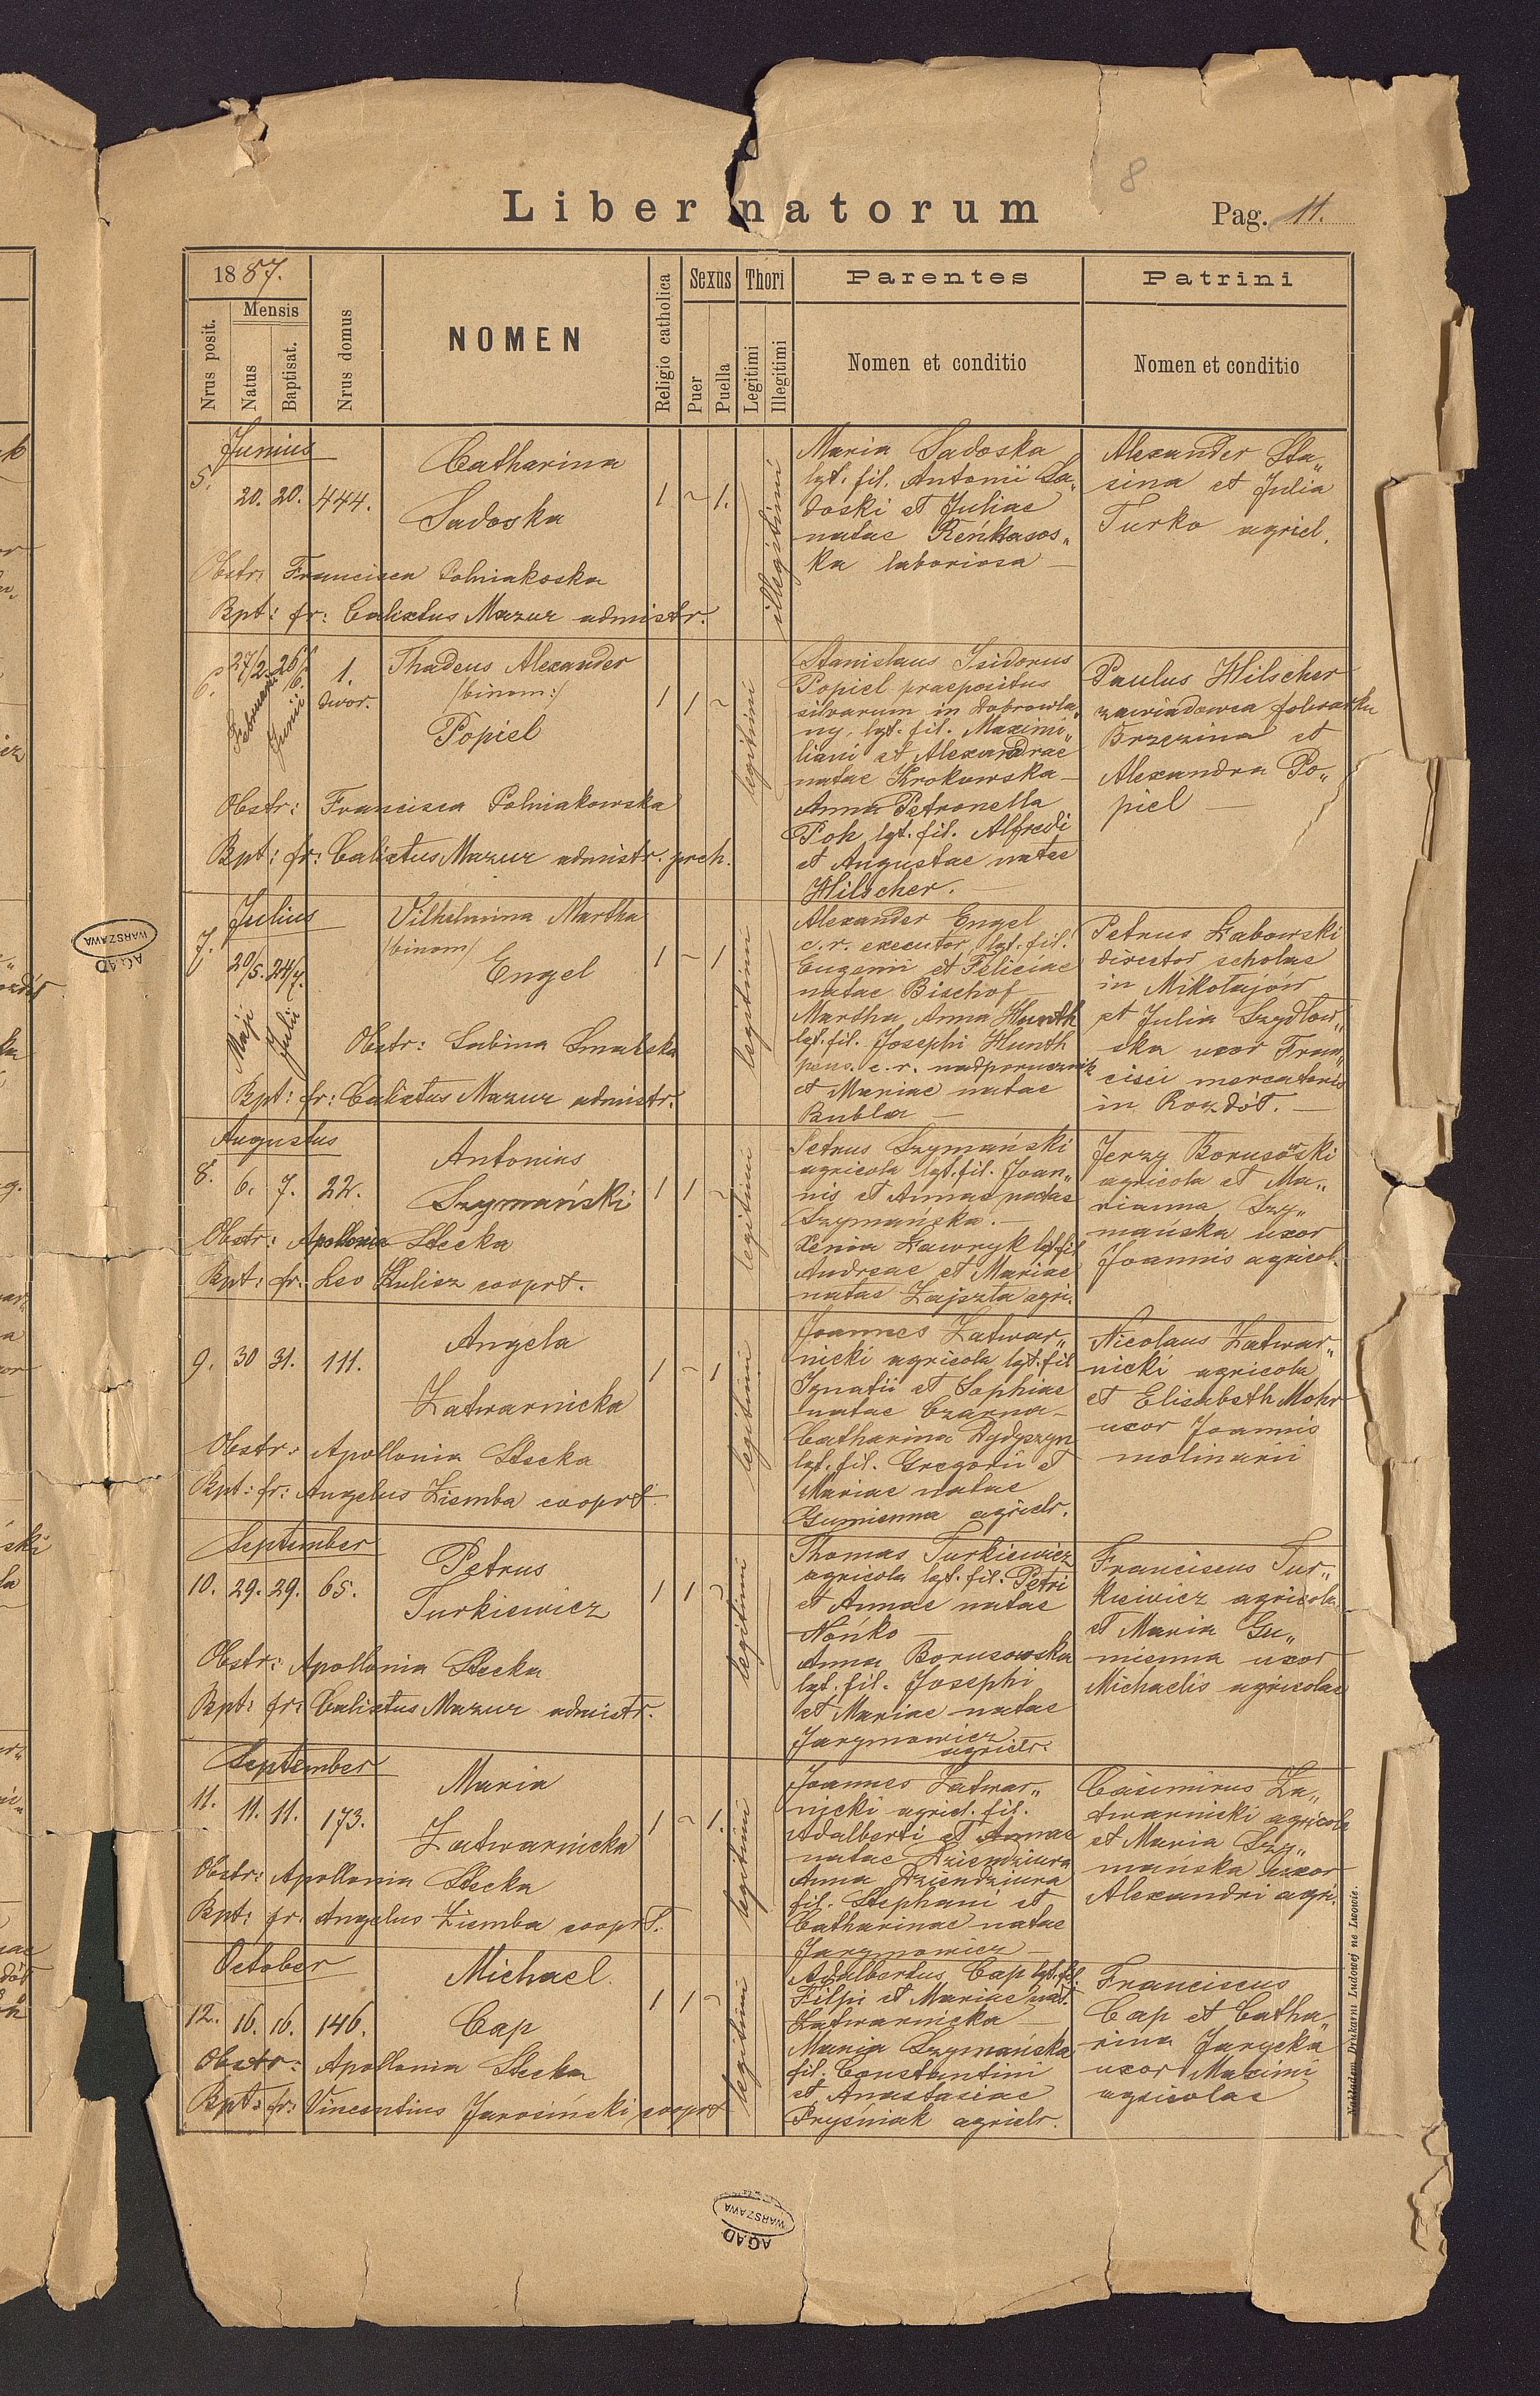 8
Liber natorum
Pag. 11.
1887.
Nrus posit.
Mensis
Natus
Baptisat.
Nrus domus
NOMEN
Religio catholica
Sexus
Puer
Puella
Thori
Legitimi
Illegitimi
Parentes
Nomen et conditio
Patrini
Nomen et conditio
Junius
5. 20. 20. 444.
Catharina
Sadoska
1 ~ 1.
illegitimi
Maria Sadoska
lgt. fil. Antonii Sa„
doski et Juliae
natae Reńkasos„
ka laboriosa —
Alexander Sta„
sina et Julia
Turko agricl.
Obstr: Francisca Polniakoska
Bpt: fr: Calixtus Mazur admistr.
6. 27/2. 26/6. 1.
Februarii Junii dwor.
Thadeus Alexander
/binom:/
Popiel
1 1 ~
legitimi
Stanislaus Isidorus
Popiel praepositus
silvarum in Dobrowla„
ny, lgt. fil. Maximi„
liani et Alexandrae
natae Krokowska —
Anna Petronella
Poh lgt. fil. Alfredi
et Augustae natae
Hilscher. —
Paulus Hilscher
zawiadowca folwarku
Brzezina et
Alexandra Po„
piel —
Obstr: Francisca Polniakowska
Bpt: fr: Calixtus Mazur admistr. prch.
Julius
7. 20/5. 24/7.
Maji Julii
Vilhelmina Martha
/binom/
Engel
1 ~ 1
legitimi
Alexander Engel
c. r. executor, lgt. fil.
Eugenii et Feliciae
natae Bischof —
Martha Anna Hunth
lgt. fil. Josephi Hunth
pens. c. r. nadporucznik
et Mariae natae
Bubla —
Petrus Łabowski
director scholae
in Mikołajów
et Julia Szydłow„
ska uxor Fran„
cisci mercatoris
in Rozdół. —
Obstr: Sabina Smalska
Bpt: fr: Calixtus Mazur admistr.
Augustus
8. 6. 7. 22.
Antonius
Szymański
1 1 ~
legitimi
Petrus Szymański
agricola lgt. fil. Joan„
nis et Annae natae
Szymańska. —
Xenia Ławryk lgt. fil
Andreae et Mariae
natae Zajszla agri.
Jerzy Borusowski
agricola et Ma„
rianna Szy„
mańska uxor
Joannis agricol.
Obstr: Apollonia Stecka
Bpt: fr: Leo Kulisz cooprt.
9. 30 31. 111.
Angela
Zatwarnicka
1 ~ 1
legitimi
Joannes Zatwar„
nicki agricola lgt. fil
Ignatii et Sophiae
natae Czarna —
Catharina Dydyszyn
lgt. fil. Gregorii et
Mariae natae
Gumienna agricolr.
Nicolaus Zatwar„
nicki agricola
et Elisabeth Mohr
uxor Joannis
molinarii
Obstr: Apollonia Stecka
Bpt: fr: Angelus Ziemba cooprt
September
10. 29. 29. 65.
Petrus
Turkiewicz
1 1 ~
legitimi
Thomas Turkiewicz
agricola lgt. fil. Petri
et Annae natae
Nońko —
Anna Borusowska
lgt. fil. Josephi
et Mariae natae
Jarymowicz
agricolr.
Franciscus Tur„
kieiwicz agricola
et Maria Gu„
mienna uxor
Michaelis agricolae
Obstr: Apollonia Stecka
Bpt: fr: Calixtus Mazur admistr.
September
11. 11. 11. 173.
Maria
Zatwarnicka
1 ~ 1.
legitimi
Joannes Zatwar„
nicki agricl. fil.
Adalberti et Annae
natae Dziendziura
Anna Dziendziura
fil. Stephani et
Catharinae natae
Jarymowicz —
Casimirus Za„
twarnicki agricola
et Maria Szy„
mańska uxor
Alexandri agri.
Obstr: Apollonia Stecka
Bpt: fr: Angelus Ziemba cooprt.
October
12. 16. 16. 146.
Michael.
Cap
1 1 ~
legitimi
Adalbertus Cap lgt. fil.
Filpi et Mariae nat.
Zatwarnicka —
Maria Szymańska
fil. Constantini
et Anastasiae
Pryśniak agricolr.
Franciscus
Cap et Catha„
rina Jarycka
uxor Maximi
agricolae
Obstr: Apollonia Stecka
Bpt: fr: Vincentius Jarosiński cooprt
Nakładem Drukarni Ludowej we Lwowie.
AGAD
WARSZAWA
AGAD
WARSZAWA